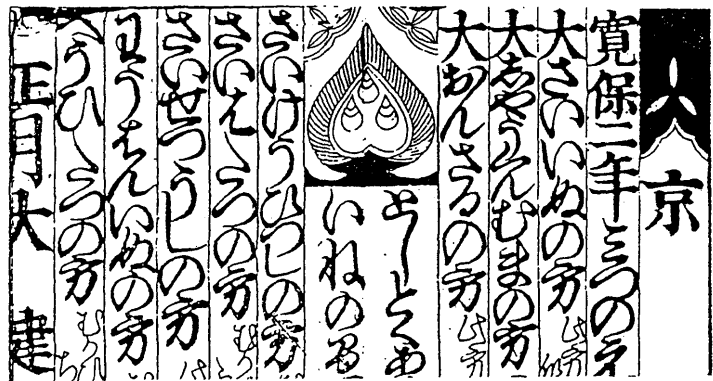 京
寛保二年みつのえ
大さいいぬの方 此方
大しやうくんむまの方
大おんさるの方 此方
としとくあ
いねの
さいけうひつしの方
さいはたつの方
さいせつうしの方
わうはんいぬの方
へうひたつの方
正月大 建